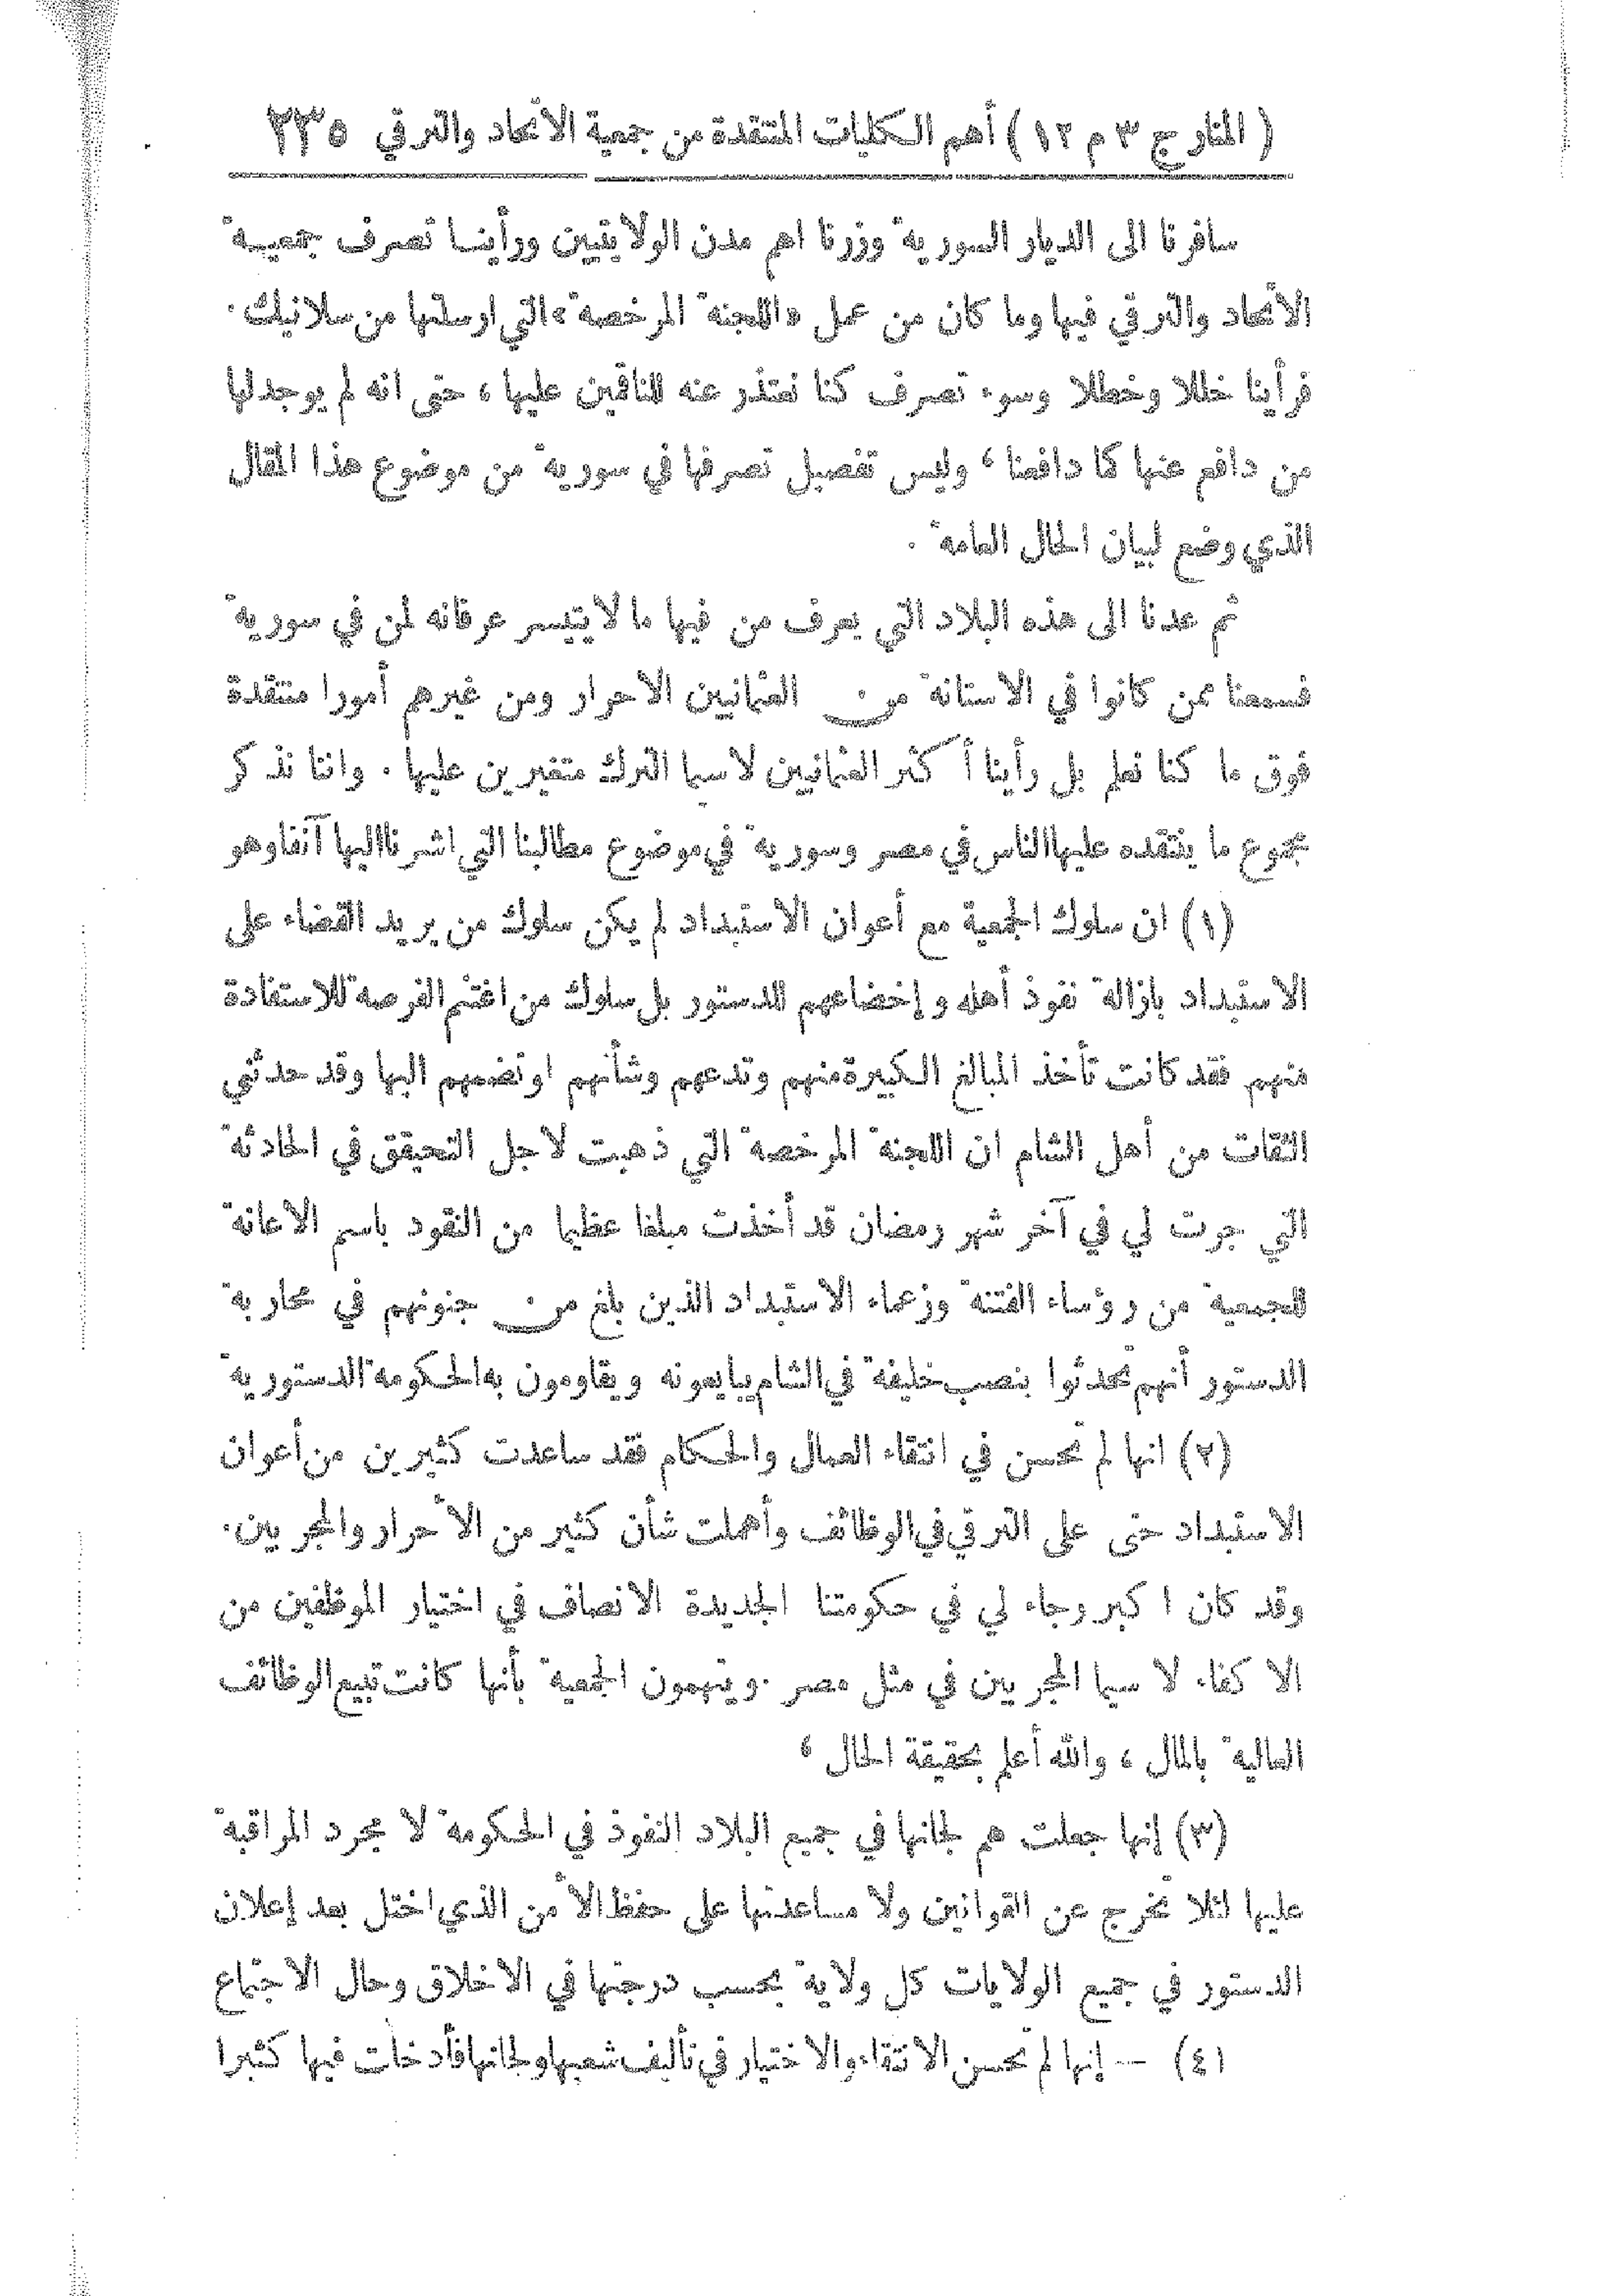 ( المنار ج ٣ م ١٢ ) أهم الكليات المنتقدة من جمعية الاتحاد والترقي ٢٣٥
سافرنا الى الديار السورية وزرنا اهم مدن الولايتيين ورأينا تصرف جمعية
الاتحاد والترقي فيها وما كان من عمل «اللجنة المرخصة» التي ارسلتها من سلانيك .
فرأينا خللا وخطلا وسوء تصرف كنا نعتذر عنه للناقمين عليها ، حتى انه لم يوجد لها
من دافع عنها كما دافعنا ، وليس تفصيل تصرفها في سورية من موضوع هذا المقال
الذي وضع لبيان الحال العامة .
ثم عدنا الى هذه البلاد التي يعرف من فيها ما لا يتيسر عرفانه لمن في سورية
فسمعنا ممن كانوا في الاستانة من العثمانيين الاحرار ومن غيرهم أمورا منتقدة
فوق ما كنا نعلم بل رأينا أكثر العثمانيين لاسيما الترك متغيرين عليها . واننا نذكر
مجموع ما ينتقده عليها الناس في مصر وسورية في موضوع مطالبنا التي اشرنا اليها آنفا وهو
(١) ان سلوك الجمعية مع أعوان الاستبداد لم يكن سلوك من يريد القضاء على
الاستبداد بازالة نفوذ أهله و إخضاعهم للدستور بل سلوك من اغتنم الفرصة للاستفادة
منهم فقد كانت تأخذ المبالغ الكبيرة منهم وتدعهم وشأنهم او تضمهم اليها وقد حدثني
الثقات من أهل الشام ان اللجنة المرخصة التي ذهبت لاجل التحيقق في الحادثة
التي جرت لي في آخر شهر رمضان قد أخذت مبلغا عظيما من النقود باسم الاعانة
للجمعية من رؤساء الفتنة وزعماء الاستبداد الذين بلغ من جنونهم في محاربة
الدستور أنهم تحدثوا بنصب خليفة في الشام يبايعونه ويقاومون به الحكومة الدستورية
(٢) انها لم تحسن في انتقاء العمال والحكام فقد ساعدت كثيرين من أعوان
الاستبداد حتى على الترقي في الوظائف وأهملت شأن كثير من الأحرار والمجربين .
وقد كان اكبر رجاء لي في حكومتنا الجديدة الانصاف في اختيار الموظفين من
الاكفاء لا سيما المجربين في مثل مصر . ويتهمون الجمعية بأنها كانت تبيع الوظائف
العالية بالمال ، والله أعلم بحقيقة الحال ،
(٣) إنها جعلت هم لجانها في جميع البلاد النفوذ في الحكومة لا مجرد المراقبة
عليها لئلا تخرج عن القوانين ولا مساعدتها على حفظ الأمن الذي اختل بعد إعلان
الدستور في جميع الولايات كل ولاية بحسب درجتها في الاخلاق وحال الاجتماع
(٤) — إنها لم تحسن الانتقاء والاختيار في تأليف شعبها ولجانها فأدخلت فيها كثيرا